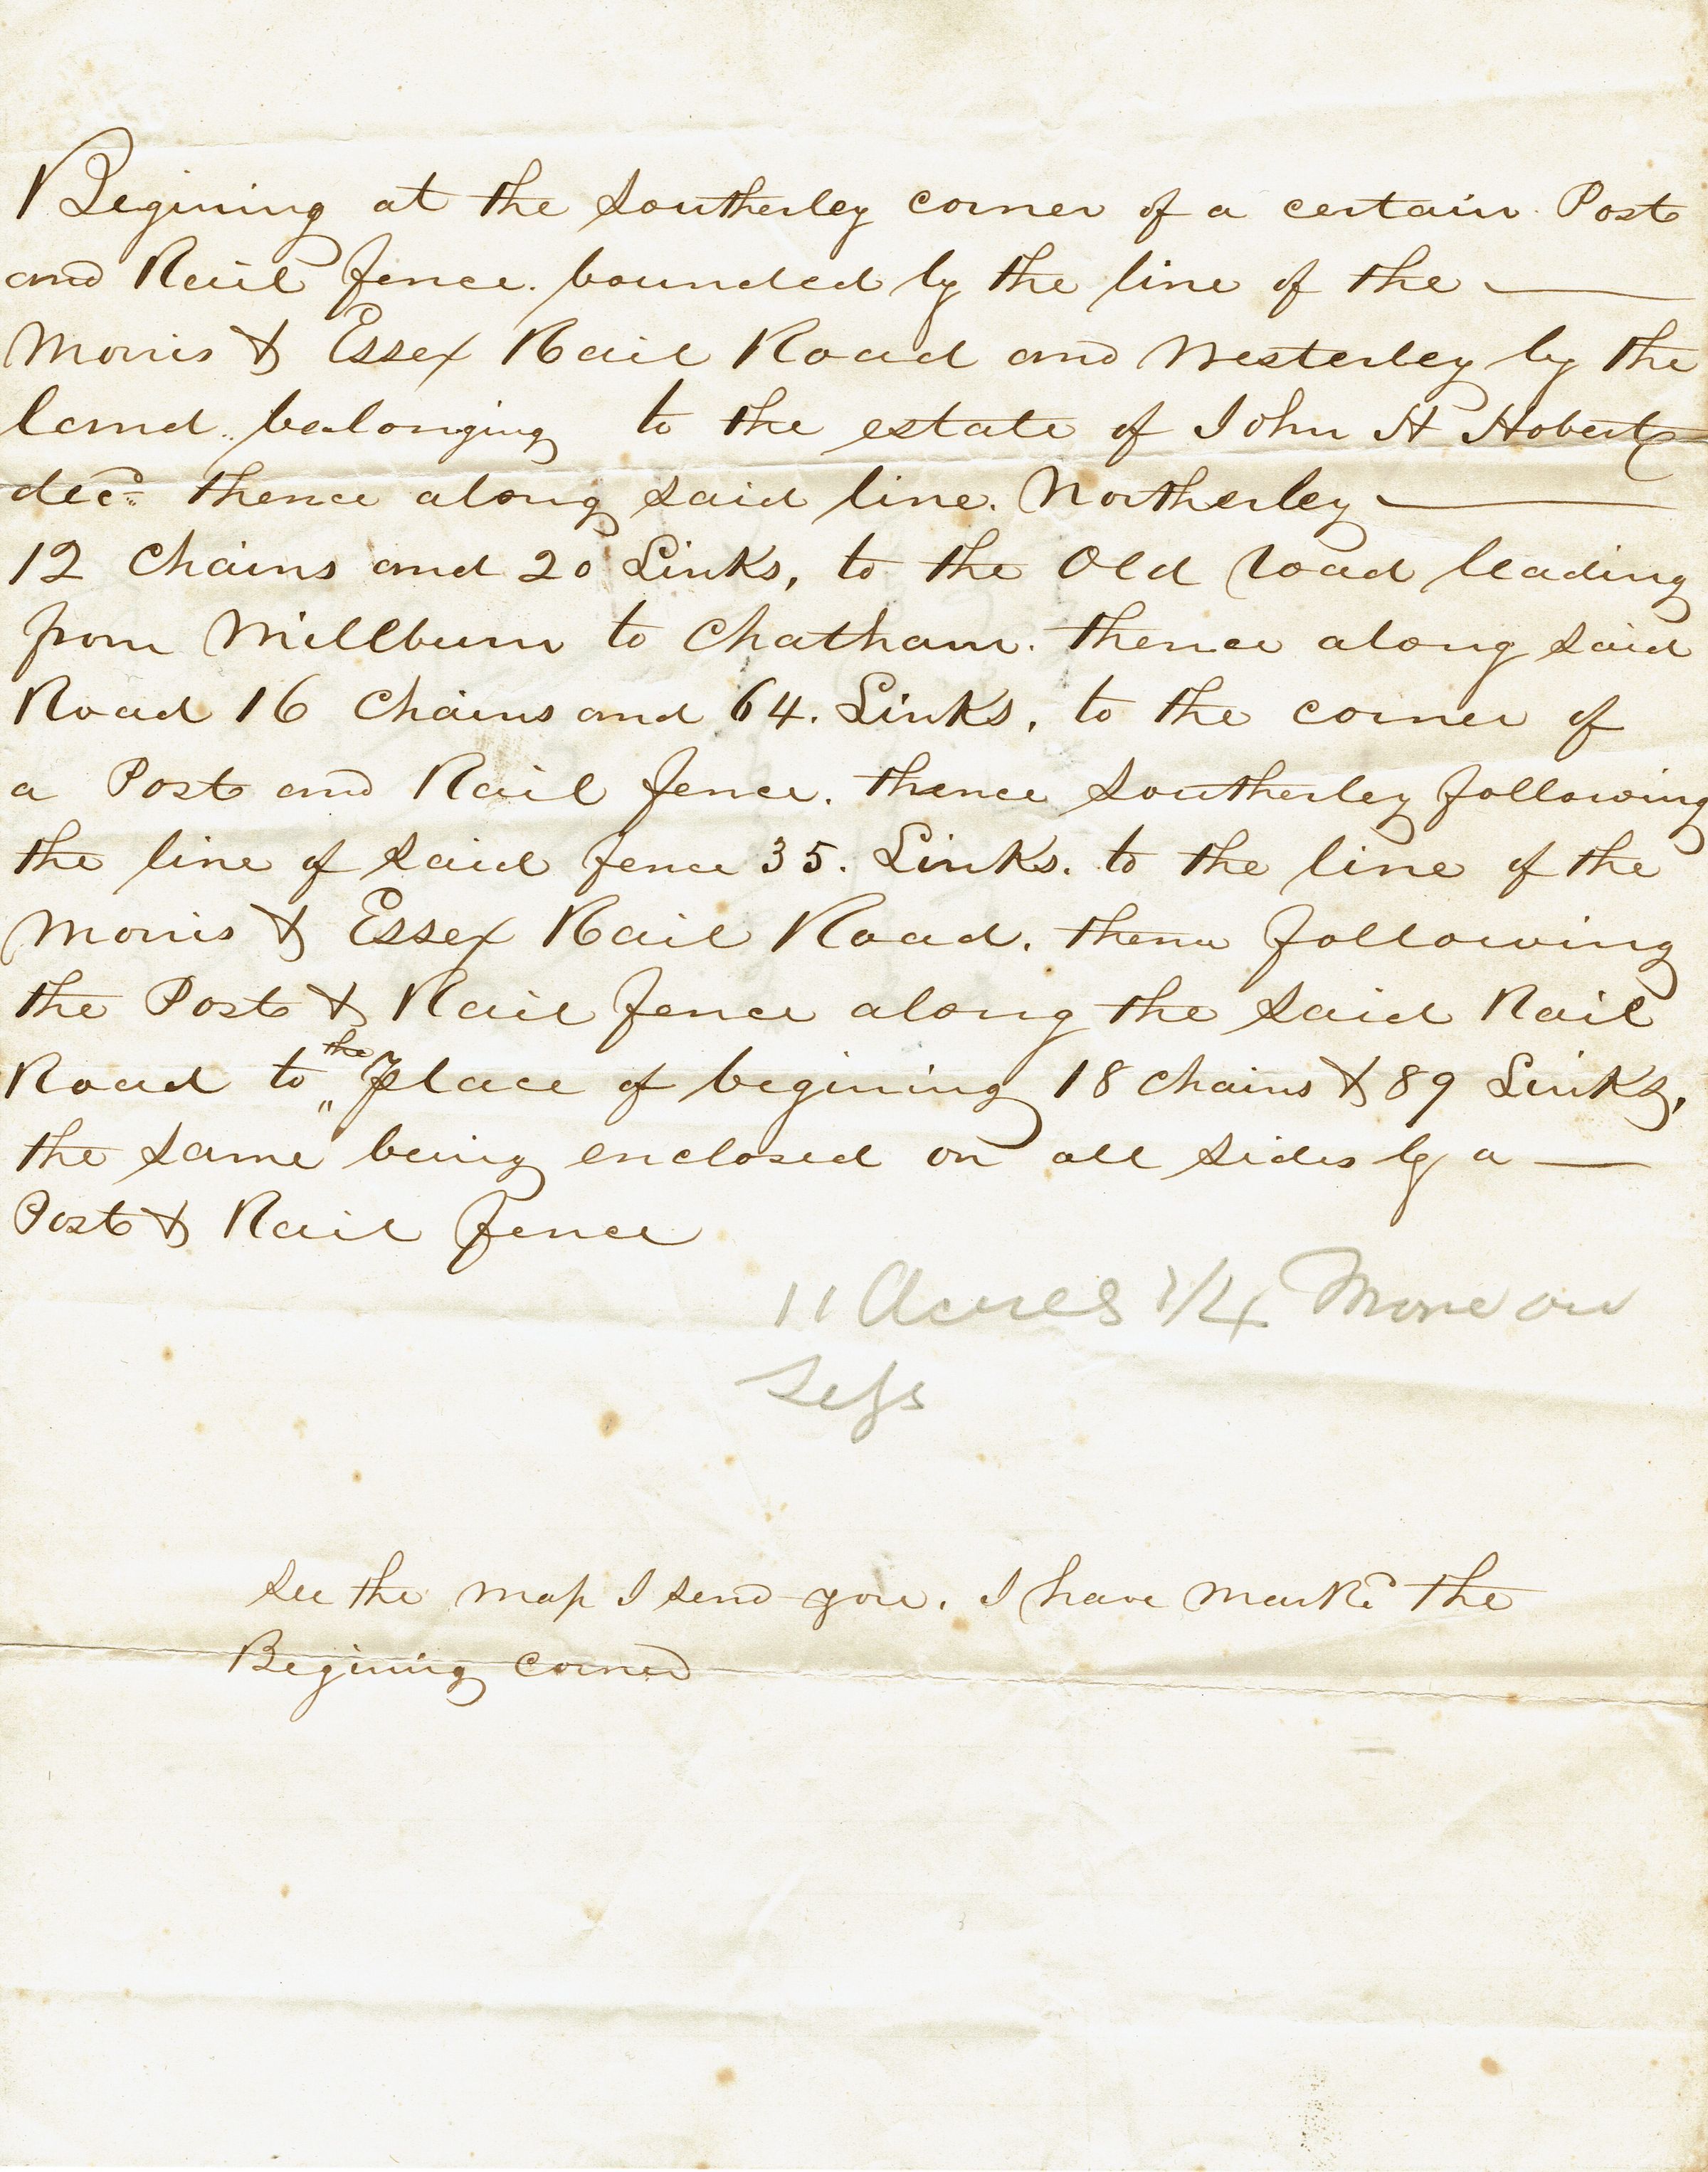 Begining at the Southerley corner of a certain Post
and Rail fence. bounded by the line of the
Morris & Essex Rail Road and Westerley by the
land belonging to the estate of John H Hobert
decd thence along said line. Northerley
12 Chains and 20 Links, to the Old road leading
from Millburn to Chatham. thence along said
Road 16 Chains and 64. Links, to the corner of
a Post and Rail fence. thence Southerley following
the line of said fence 35. Links. to the line of the
Morris & Essex Rail Road. thence following
the Post & Rail fence along the said Rail
Road to the place of begining 18 chains & 89 Links,
the same being enclosed on all sides by a
Post & Rail fence
11 Acres 1/4 More or
Less
See the map I send you. I have markd the
Begining corner